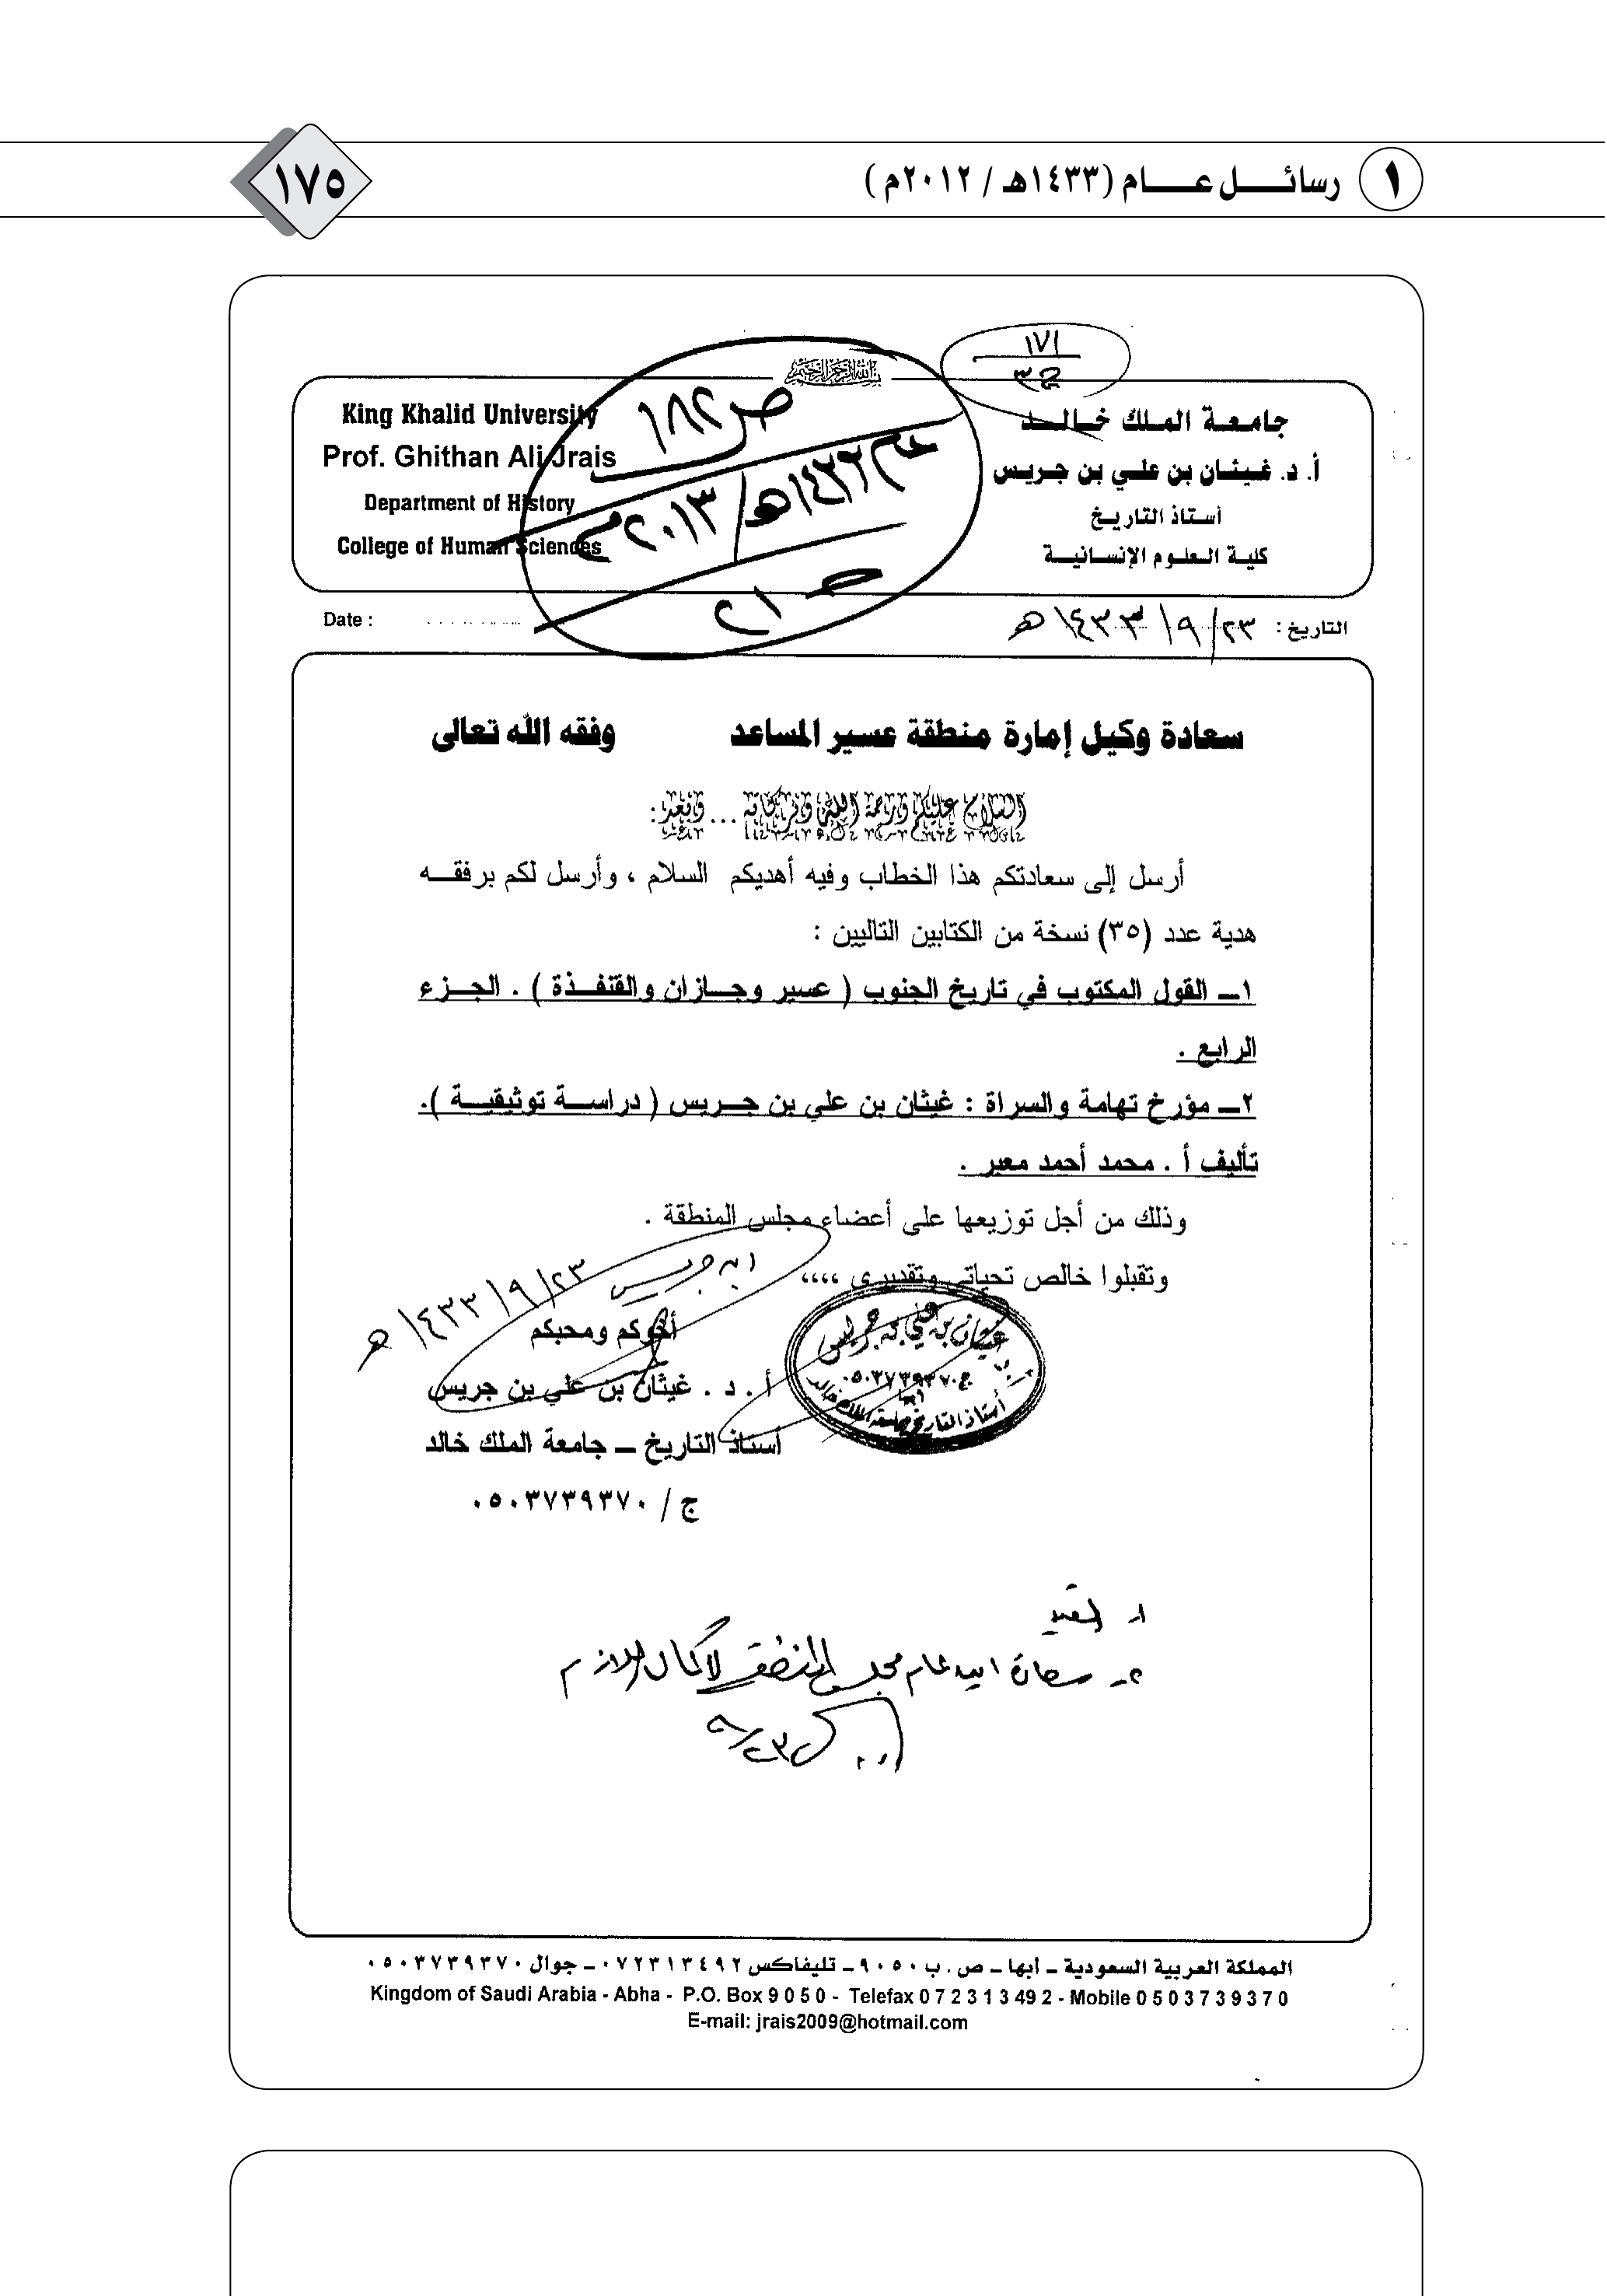 ١ رسائل عام (١٤٣٣هـ / ٢٠١٢م)
١٧٥
١٧١
ج٣
ص ١٨٢
عام ١٤٣٣هـ / ٢٠١٣م
ص ٢١
King Khalid University
Prof. Ghithan Ali Jrais
Department of History
College of Human Sciences
جامعة الملك خالد
أ. د. غيثان بن علي بن جريس
أستاذ التاريخ
كلية العلوم الإنسانية
Date :
التاريخ : ٢٣/ ٩/ ١٤٣٣هـ
سعادة وكيل إمارة منطقة عسير المساعد وفقه الله تعالى
السلام عليكم ورحمة الله وبركاته ... وبعد:
أرسل إلى سعادتكم هذا الخطاب وفيه أهديكم السلام ، وأرسل لكم برفقه
هدية عدد (٣٥) نسخة من الكتابين التاليين :
١ــ القول المكتوب في تاريخ الجنوب ( عسير وجازان والقنفذة ) . الجزء
الرابع .
٢ــ مؤرخ تهامة والسراة : غيثان بن علي بن جريس ( دراسة توثيقية ).
تأليف أ . محمد أحمد معبر .
وذلك من أجل توزيعها على أعضاء مجلس المنطقة .
وتقبلوا خالص تحياتي وتقديري ،،،،
ابن جريس
٢٣/ ٩/ ١٤٣٣هـ
أخوكم ومحبكم
أ . د . غيثان بن علي بن جريس
أستاذ التاريخ ــ جامعة الملك خالد
ج / ٠٥٠٣٧٣٩٣٧٠
غيثان بن علي بن جريس
ج ٠٥٠٣٧٣٩٣٧٠
أبها
أستاذ التاريخ بجامعة الملك خالد
١- للقيد
٢- سعادة امين عام مجلس المنطقة لاكمال اللازم
٢٣/٩
المملكة العربية السعودية ــ أبها ــ ص . ب ٩٠٥٠ ــ تليفاكس ٠٧٢٣١٣٤٩٢ ــ جوال ٠٥٠٣٧٣٩٣٧٠
Kingdom of Saudi Arabia - Abha - P.O. Box 9 0 5 0 - Telefax 0 7 2 3 1 3 49 2 - Mobile 0 5 0 3 7 3 9 3 7 0
E-mail: jrais2009@hotmail.com